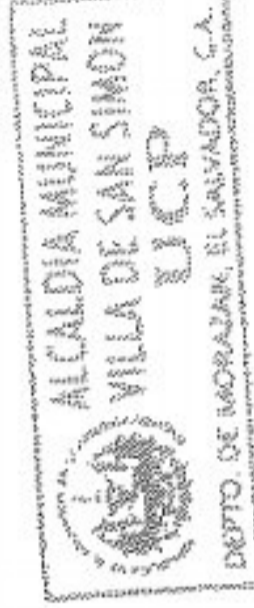 ALCALDIA MUNICIPAL
VILLA DE SAN SIMON
UCP
DEPTO. DE MORAZAN, EL SALVADOR, C.A.